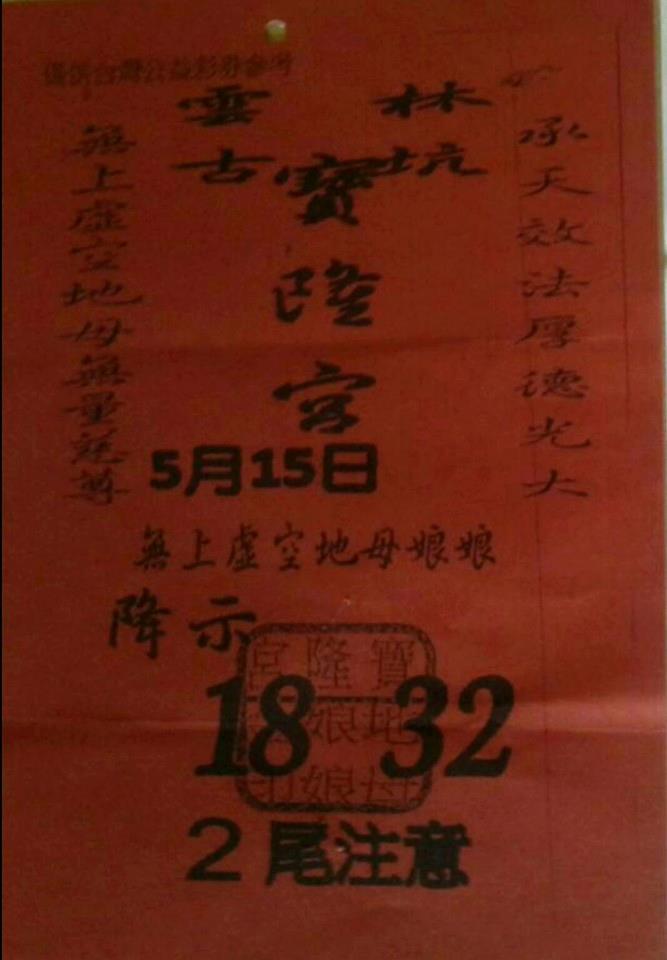 僅供台灣公益彩券參考
雲林
古坑
寶隆宮
承天效法厚德光大
無上虛空地母無量慈尊
5月15日
無上虛空地母娘娘
降示
寶隆宮
地娘
母娘
18 32
2尾注意